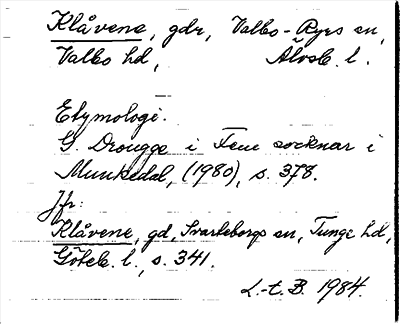 Klåvene, gdr, Valbo-Ryrs sn,
Valbo hd, Älvsb. l.
Etymologi.
G. Drougge i Fem socknar i
Munkedal, (1980), s. 378.
Jfr:
Klåvene, gd, Svarteborgs sn, Tunge hd,
Göteb. l., s. 341.
L.-t. B. 1984.